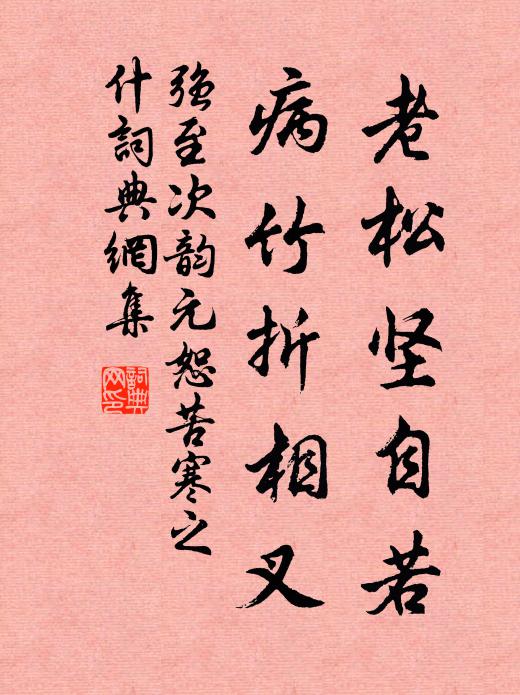 老松坚自若
病竹折相叉
强至次韵元恕苦寒之
什詞典網集
詞典网印